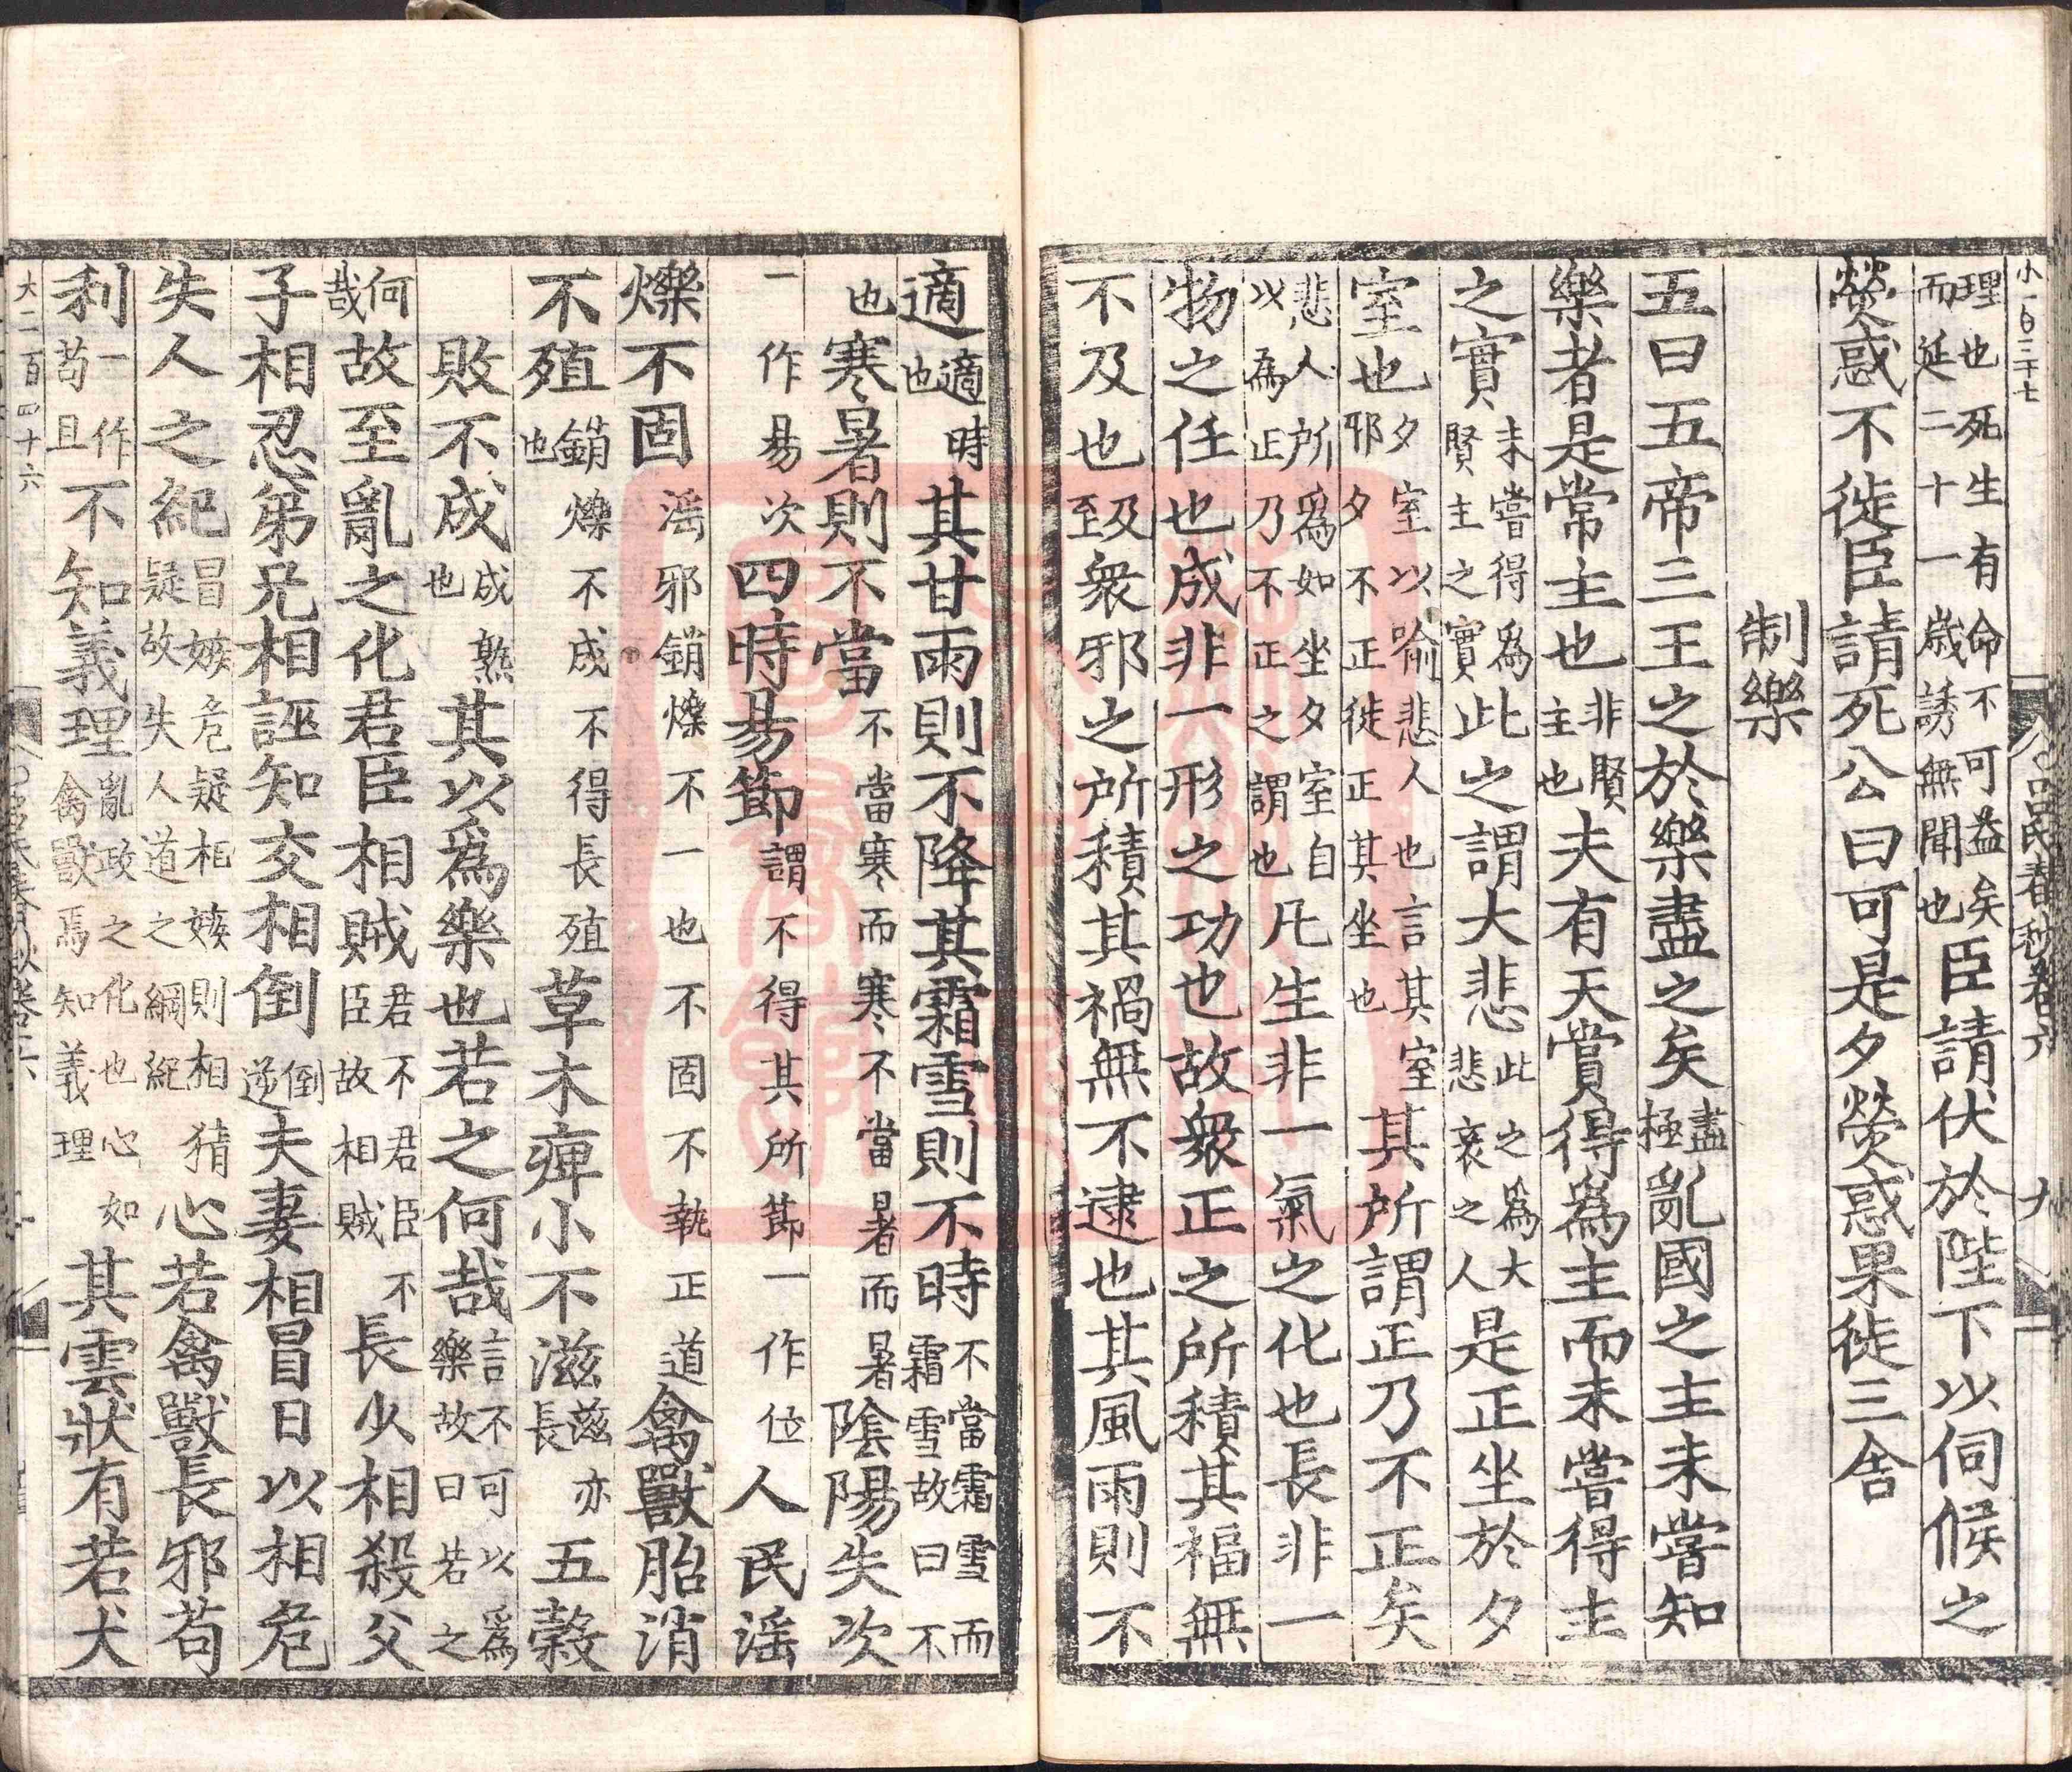 小一百二十七
呂氏春秋卷六
九
理也死生有命不可益矣
而延二十一歳誘無聞也
臣請伏於陛下以伺候之
熒惑不徙臣請死公曰可是夕熒惑果徙三舍
制樂
五曰五帝三王之於樂盡之矣盡極亂國之主未嘗知
樂者是常主也非賢主也夫有天賞得為主而未嘗得主
之實未嘗得為賢主之實此之謂大悲此之為大悲哀之人是正坐於夕
室也夕室以喻悲人也言其室邪夕不正徙正其坐也其所謂正乃不正矣
悲人所為如坐夕室自以為正乃不正之謂也凡生非一氣之化也長非一
物之任也成非一形之功也故衆正之所積其福無
不及也及至衆邪之所積其禍無不逮也其風雨則不
適適時也其甘雨則不降其霜雪則不時不當霜雪而霜雪故曰不
也寒暑則不當不當寒而寒不當暑而暑陰陽失次
一作易次四時易節謂不得其所節一作位人民滛
爍不固滛邪銷爍不一也不固不執正道禽獸胎消
不殖銷爍不成不得長殖也草木痺小不滋滋亦長五糓
敗不成成熟也其以為樂也若之何哉言不可以為樂故曰若之
何哉故至亂之化君臣相賊君不君臣不臣故相賊長少相殺父
子相忍弟兄相誣知交相倒倒逆夫妻相冒日以相危
失人之紀冒嫉危疑相嫉則相猜疑故失人道之綱紀心若禽獸長邪苟
利一作苟且不知義理亂政之化也心如禽獸焉知義理其雲狀有若犬
大二百四十六